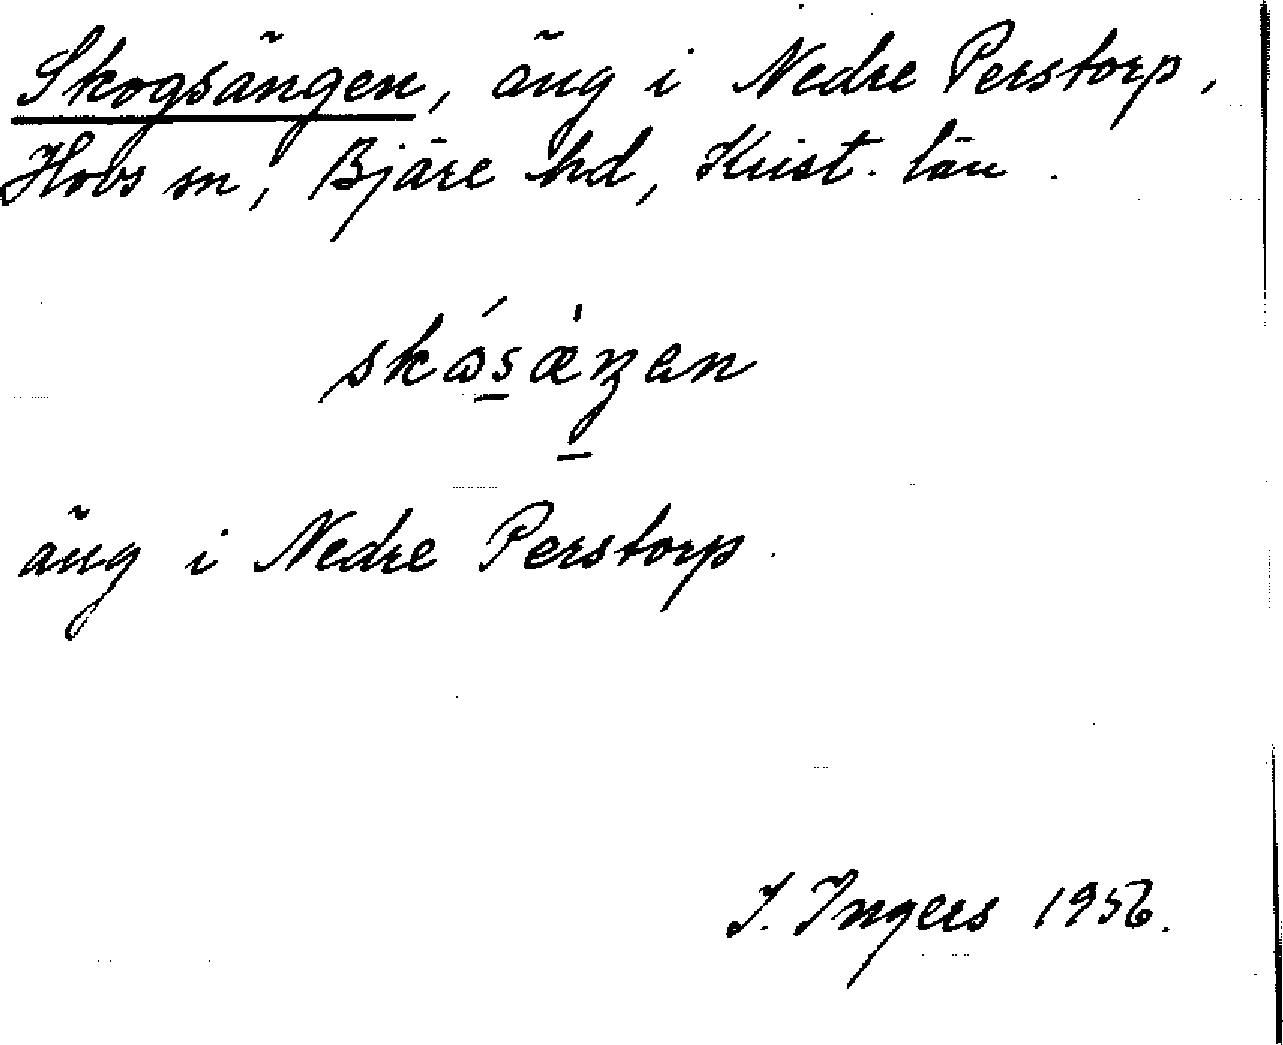 Skogsängen, äng i Nedre Perstorp,
Hovs sn, Bjäre hd, Krist. län.
skósæ̀ŋen
äng i Nedre Perstorp.
I. Ingers 1956.